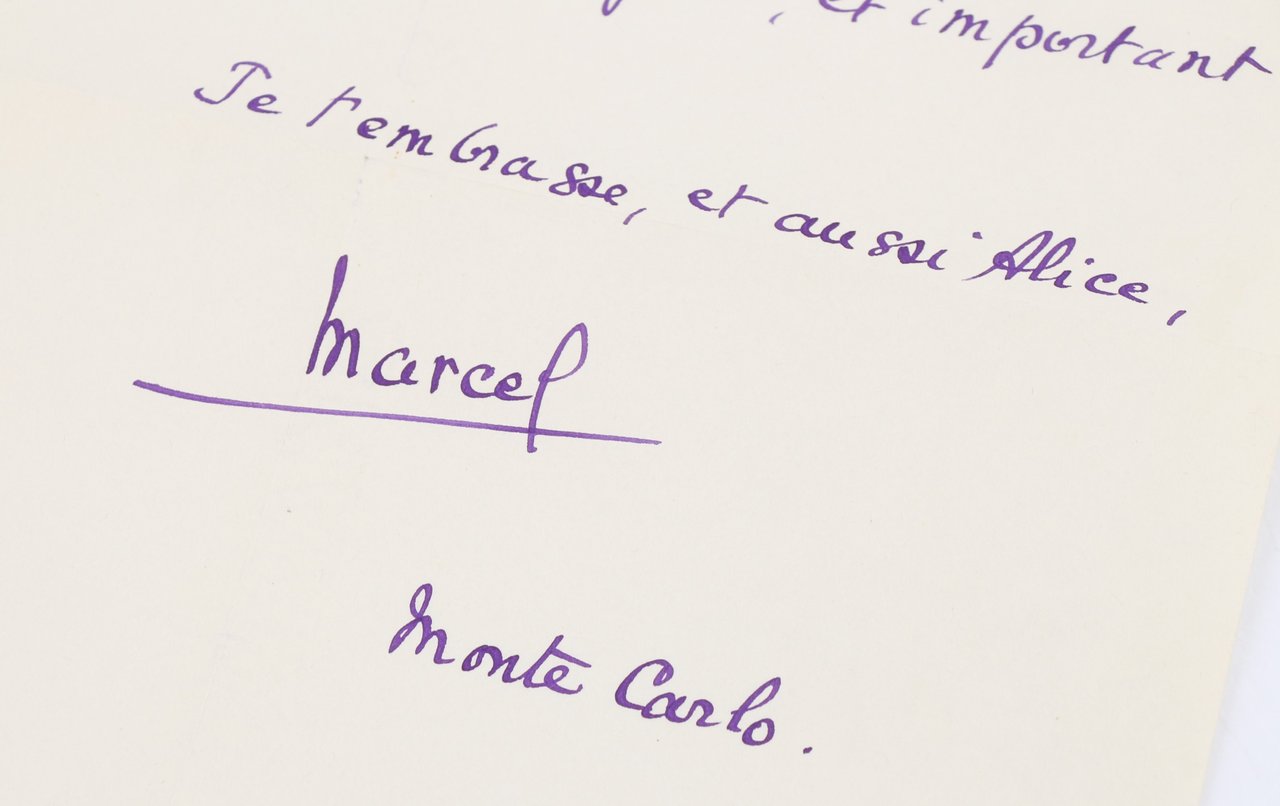 , et important
Je t'embrasse, et aussi Alice,
Marcel
Monte Carlo.